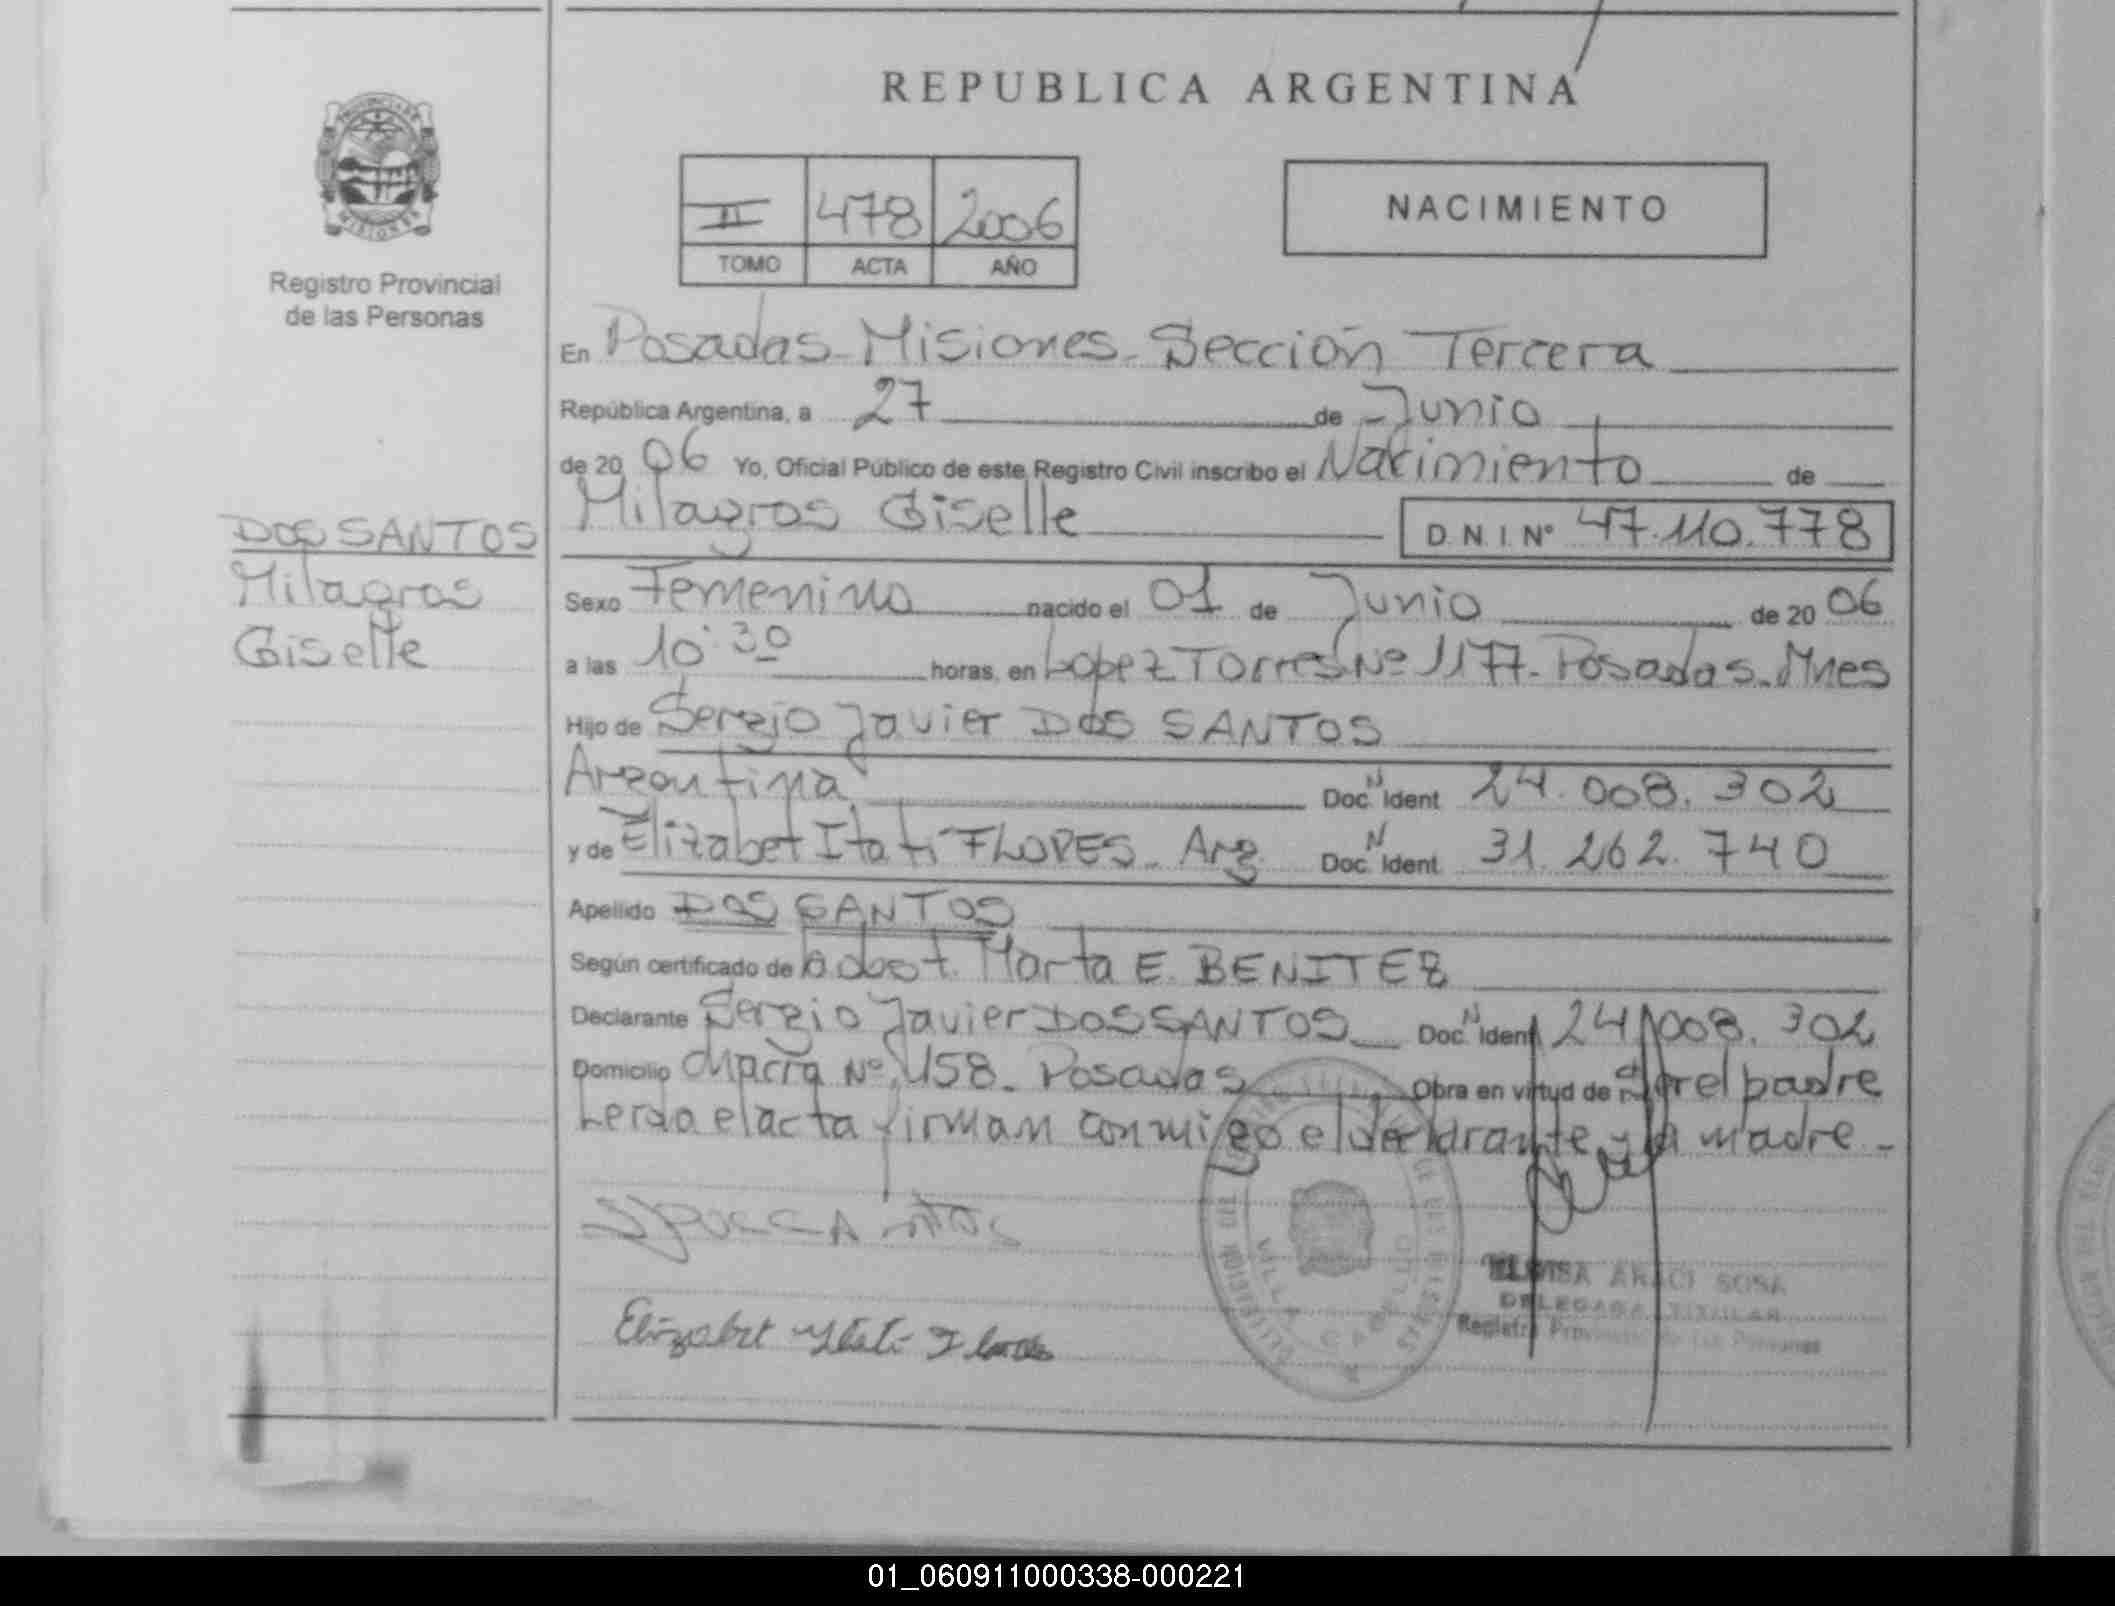 REPUBLICA ARGENTINA
PROVINCIA DE
MISIONES
Registro Provincial
de las Personas
II 478 2006
TOMO ACTA AÑO
NACIMIENTO
En Posadas - Misiones - Sección Tercera
República Argentina, a 27 de Junio
de 20 06 Yo, Oficial Público de este Registro Civil inscribo el Nacimiento de
Milagros Giselle
D.N.I. Nº 47.110.778
DOS SANTOS
Milagros
Giselle
Sexo Femenino nacido el 01 de Junio de 20 06
a las 10:30 horas, en Lopez Torres Nº 1177 - Posadas - Mnes
Hijo de Sergio Javier DOS SANTOS
Argentina Doc. N Ident 24.008.302
y de Elizabet Itatí FLORES - Arg Doc. N Ident 31.262.740
Apellido DOS SANTOS
Según certificado de obst. Marta E. BENITEZ
Declarante Sergio Javier DOS SANTOS Doc. N Ident 24.008.302
Domicilio Chacra Nº 158 - Posadas Obra en virtud de Ser el padre
Leida el acta firman conmigo el declarante y la madre -
Elizabet Itati Flores
VILLA CABELLO
ELOISA ARACI SOSA
DELEGADA TITULAR
Registro Provincial de las Personas
01_060911000338-000221